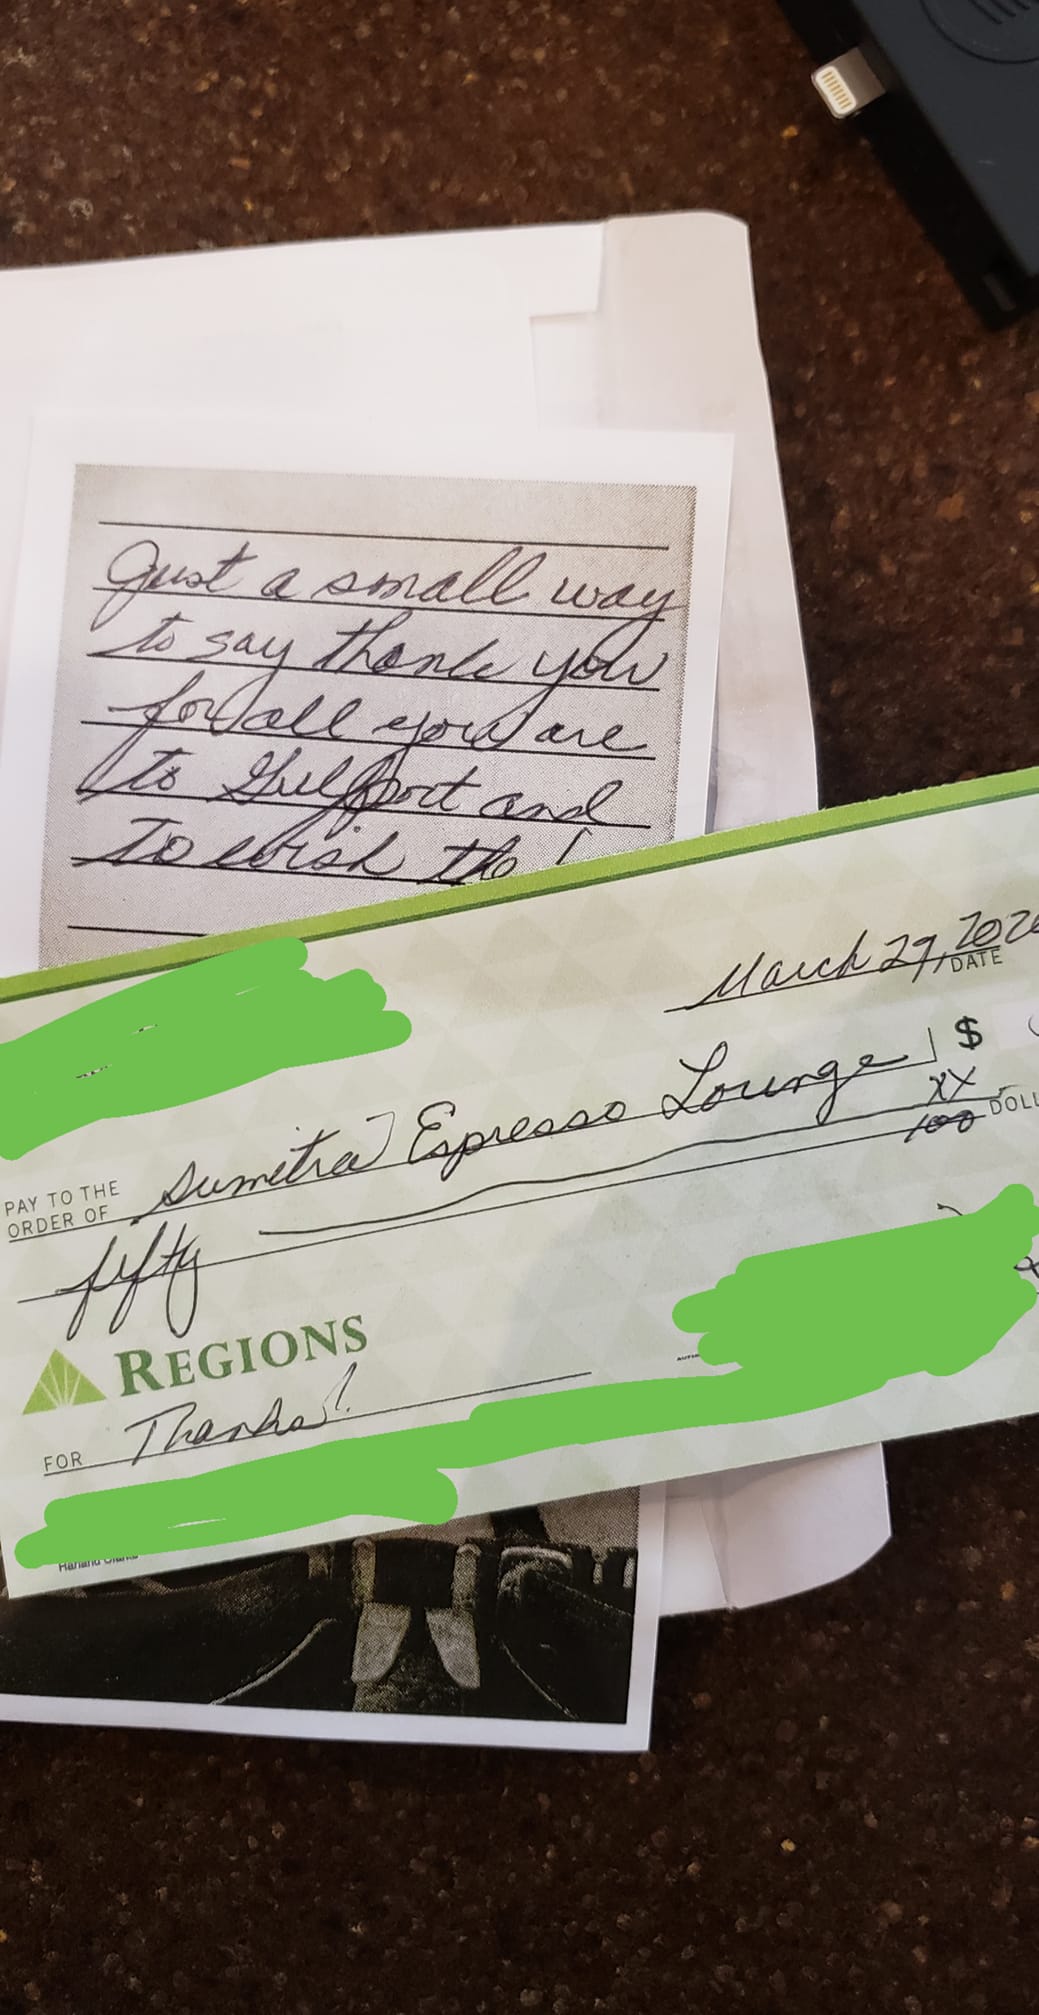 Just a small way
to say thank you
for all you are
to Gulfport and
to wish the
March 29, 2020
DATE
$
PAY TO THE
ORDER OF
Sumitra Espresso Lounge
fifty
xx
100
DOLL
REGIONS
FOR Thanks!
Harland Clarke